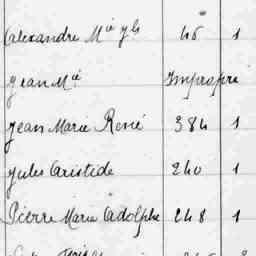 Alexandre Mie Yh 46 1
Jean Mie Impropre
Jean Marie René 384 1
Jules Aristide 240 1
Pierre Marie Adolphe 248 1